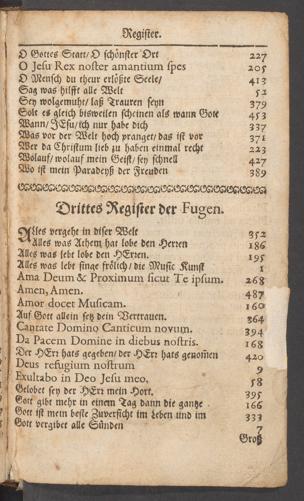 Register.
O Gottes Statt/ O schönster Ort 227
O Jesu Rex noster amantium spes 205
O Mensch du theur erlößte Seele/ 413
Sag was hilfft alle Welt 52
Sey wolgemuht/ laß Trauren seyn 379
Solt es gleich bißweilen scheinen als wann Gott 453
Wann/ JEsu/ ich nur habe dich 337
Was vor der Welt hoch pranget/ das ist vor 371
Wer da Christum lieb zu haben einmal recht 223
Wolauf/ wolauf mein Geist/ sey schnell 427
Wo ist mein Paradeyß der Freuden 389
Drittes Register der Fugen.
Alles vergeht in diser Welt 352
Alles was Athem hat lobe den Herren 186
Alles was lebt lobe den HErren. 195
Alles was lebt singe frölich/ die Music Kunst 1
Ama Deum & Proximum sicut Te ipsum. 268
Amen, Amen. 487
Amor docet Musicam. 160
Auf Gott allein setz dein Vertrauen. 364
Cantate Domino Canticum novum. 394
Da Pacem Domine in diebus nostris. 168
Der HErr hats gegeben/ der HErr hats genommen 420
Deus refugium nostrum 9
Exultabo in Deo Jesu meo. 58
Gelobet sey der HErr mein Hort. 395
Gott gibt mehr in einem Tag dann die gantze 166
Gott ist mein beste Zuversicht im Leben und im 333
Gott vergibet alle Sünden 7
Groß